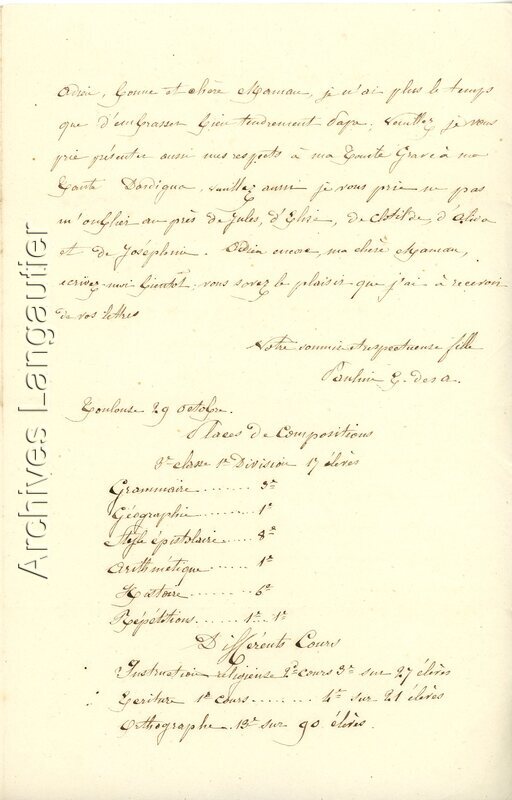 Adieu, bonne et chère Maman, je n'ai plus le temps
que d'embrasser bien tendrement Papa. Veuillez je vous
prie présenter aussi mes respects à ma Tante Grave à ma
Tante Dardigna, veuillez aussi je vous prie ne pas
m'oublier au près de Jules, d'Elisa, de Clotilde, d'
et de Joséphine. Adieu encore, ma chère Maman,
écrivez-moi bientôt; vous savez le plaisir que j'ai à recevoir
de vos lettres
Votre soumise et respectueuse fille
Pauline G. des a.
Toulouse 29 octobre.
Places de Compositions
3e classe 1e Division 17 élèves
Grammaire ....... 3e
Géographie ....... 1e
Style épistolaire .... 8e
Arithmétique ...... 1e
Histoire ....... 6e
Répétitions ....... 1e 1e
Différents Cours
Instruction réligieuse 2e cours 3e sur 27 élèves
Ecriture 1e cours ........ 4e sur 21 élèves
Orthographe 13e sur 90 élèves.
Archives Langautier